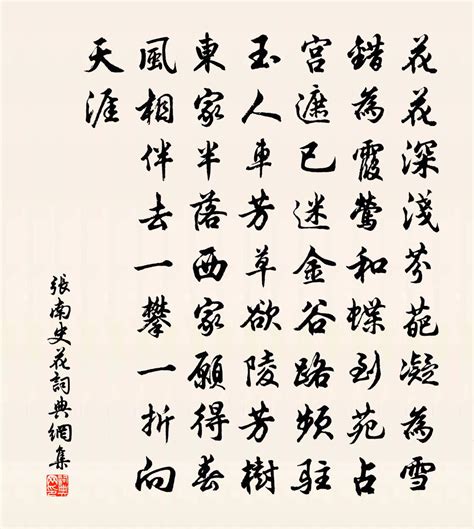 花花深淺芬葩凝為雪
錯為霞鶯和蝶到苑占
宮遮已迷金谷路頻駐
玉人車芳草欲陵芳樹
東家半落西家願得春
風相伴去一攀一折向
天涯
張南史花詞典網集